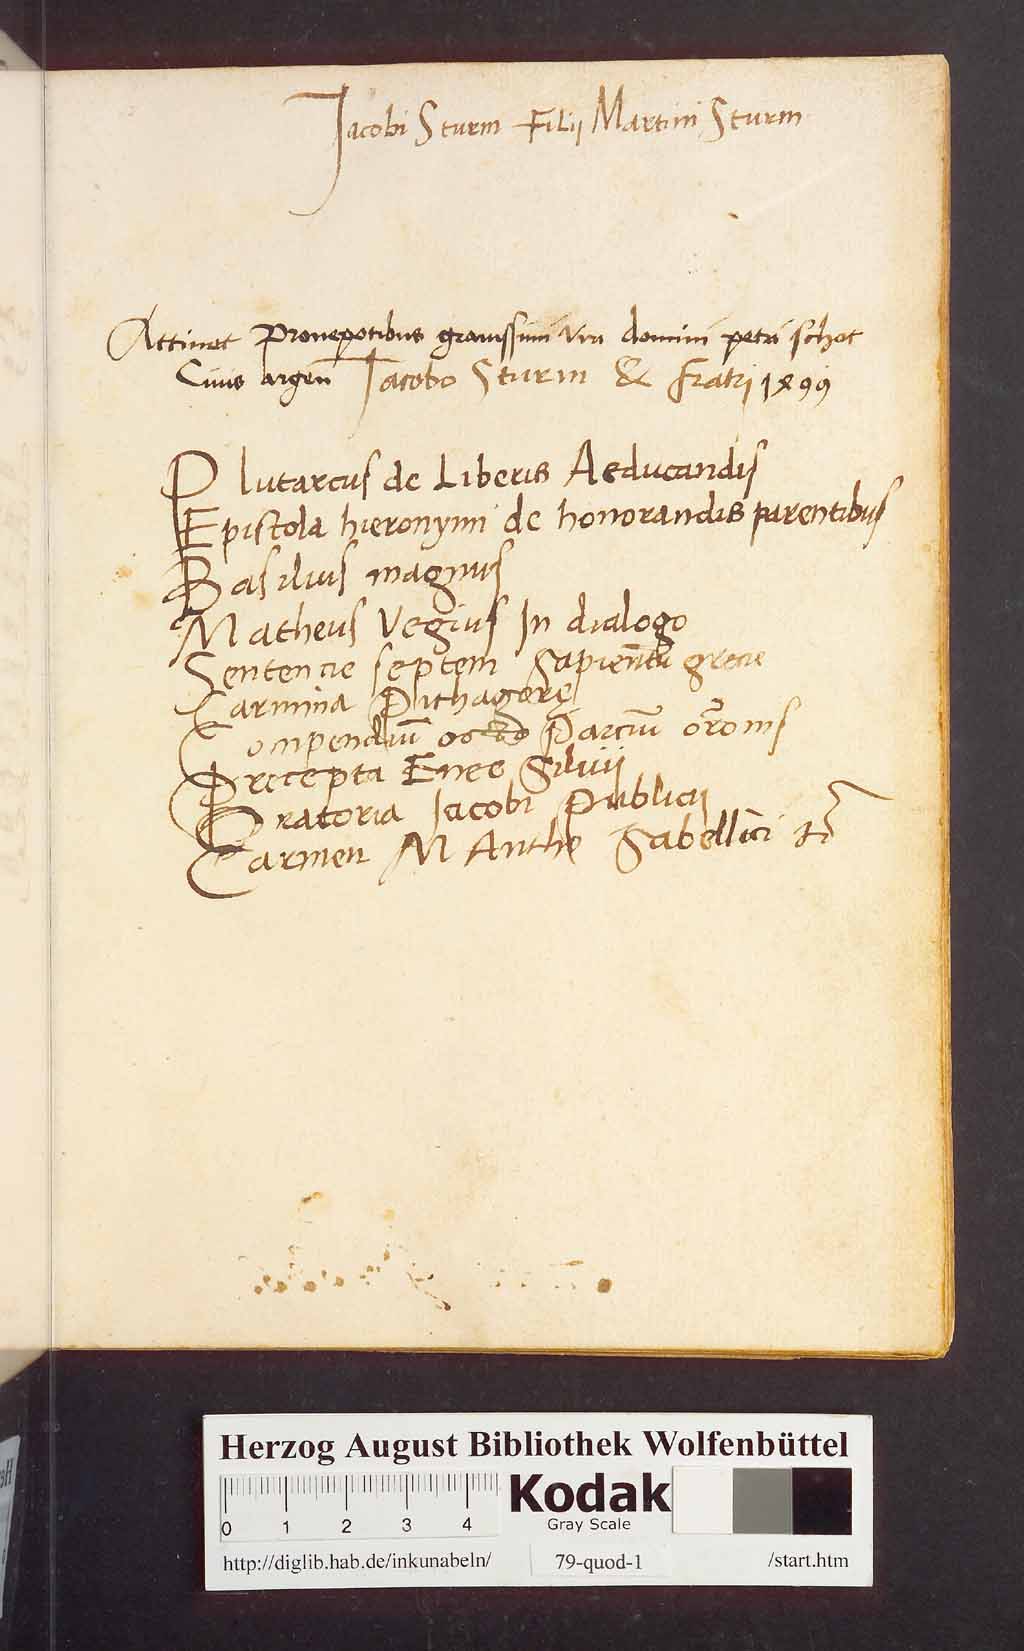 Jacobi Sturm Filij Martini Sturm
Attinet Pronepotibus grauissimi viri domini petri schot
Ciuis argen̄ Jacobo Sturm & fratri 1499
Plutarcus de Liberis Aeducandis
Epistola hieronymi de honorandis parentibus
Basilius magnus
Matheus Vegius In dialogo
Sentencie septem sapientū grecie
Carmina Pithagorę
Compendiū octo Parciū orōnis
Precepta Enee Siluij
Oratoria Jacobi Publicij
Carmen M Anthe Sabellici
Herzog August Bibliothek Wolfenbüttel
0 1 2 3 4
Kodak
Gray Scale
http://diglib.hab.de/inkunabeln/ 79-quod-1 /start.htm